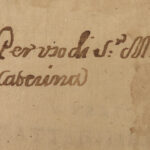 Per vso di S.ʳ M
Caterina